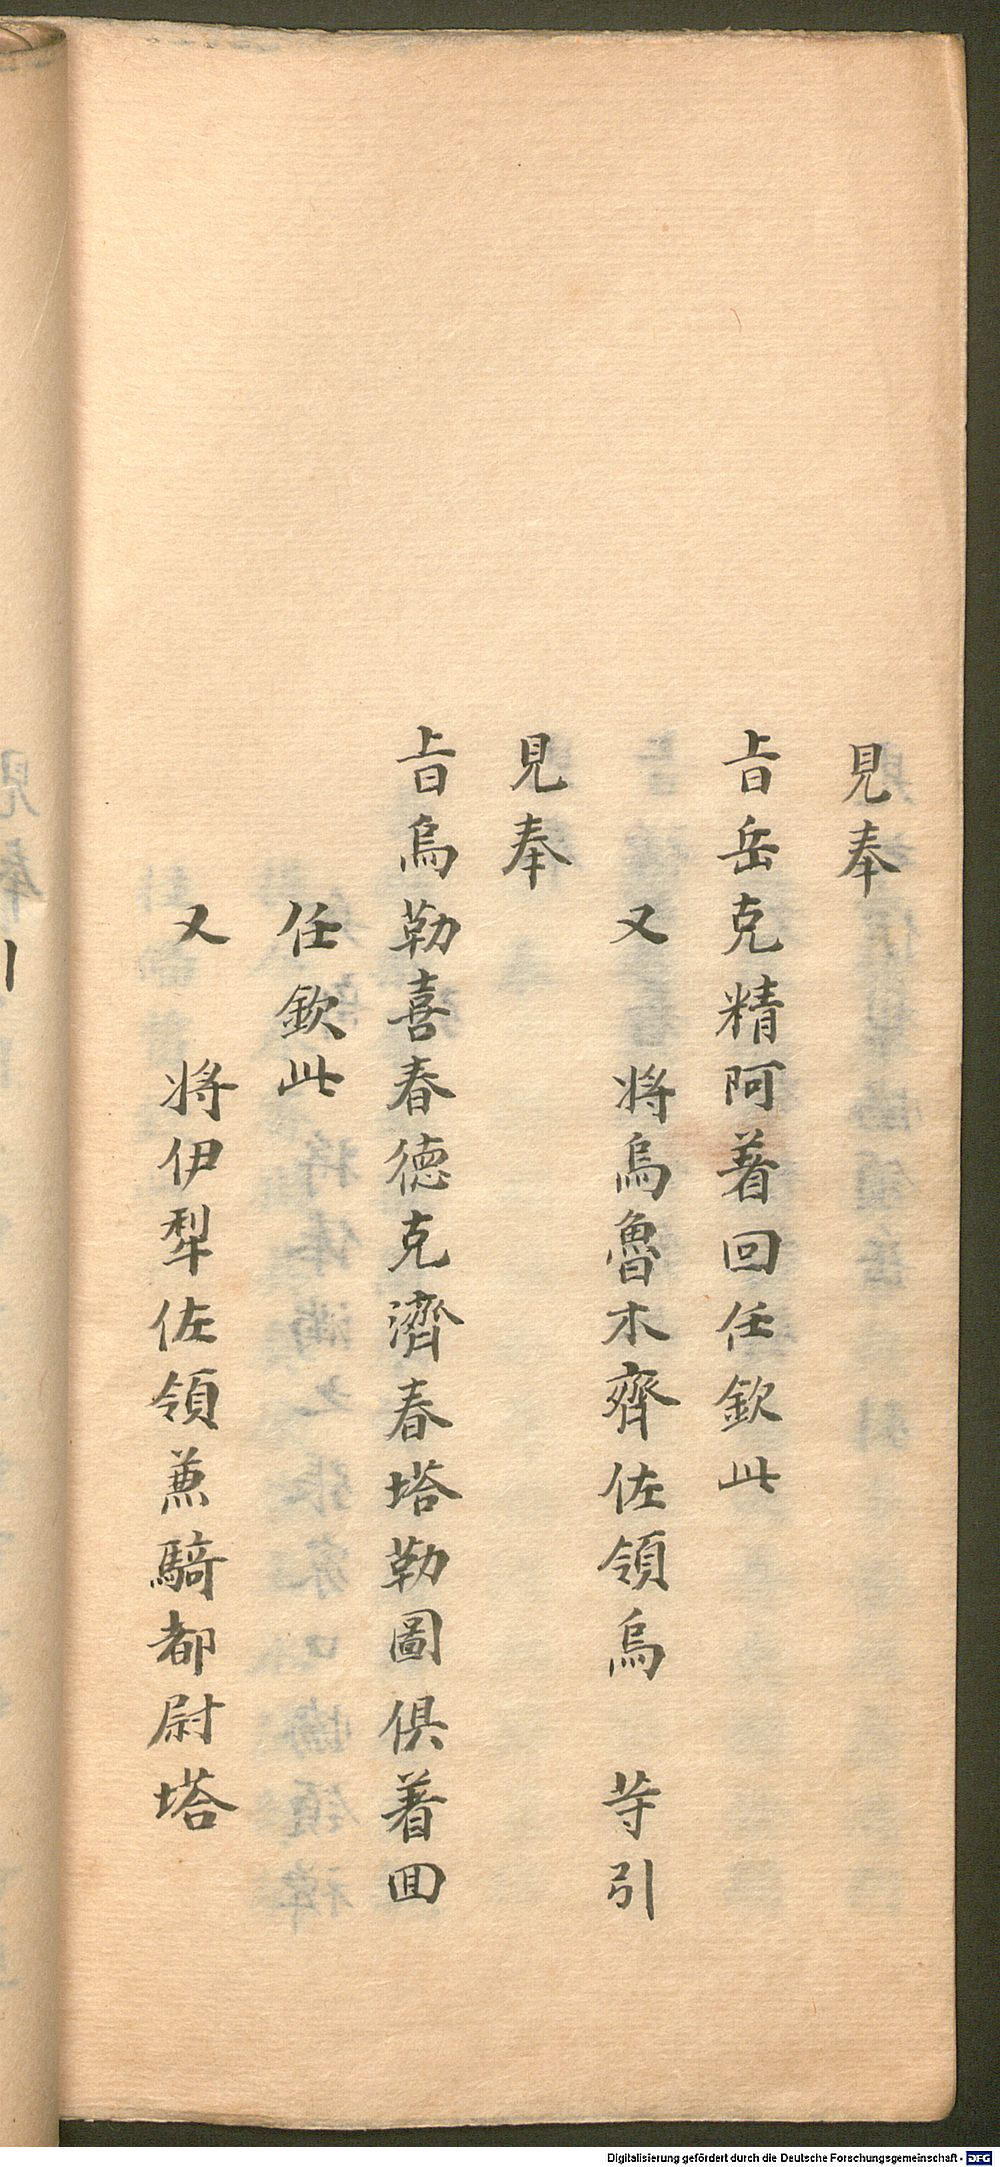 見奉
旨岳克精阿着回任欽此
又　將烏魯木齊佐領烏　等引
見奉
旨烏勒喜春德克濟春塔勒圖俱着回
任欽此
又　將伊犁佐領兼騎都尉塔
見奉
Digitalisierung gefördert durch die Deutsche Forschungsgemeinschaft - DFG